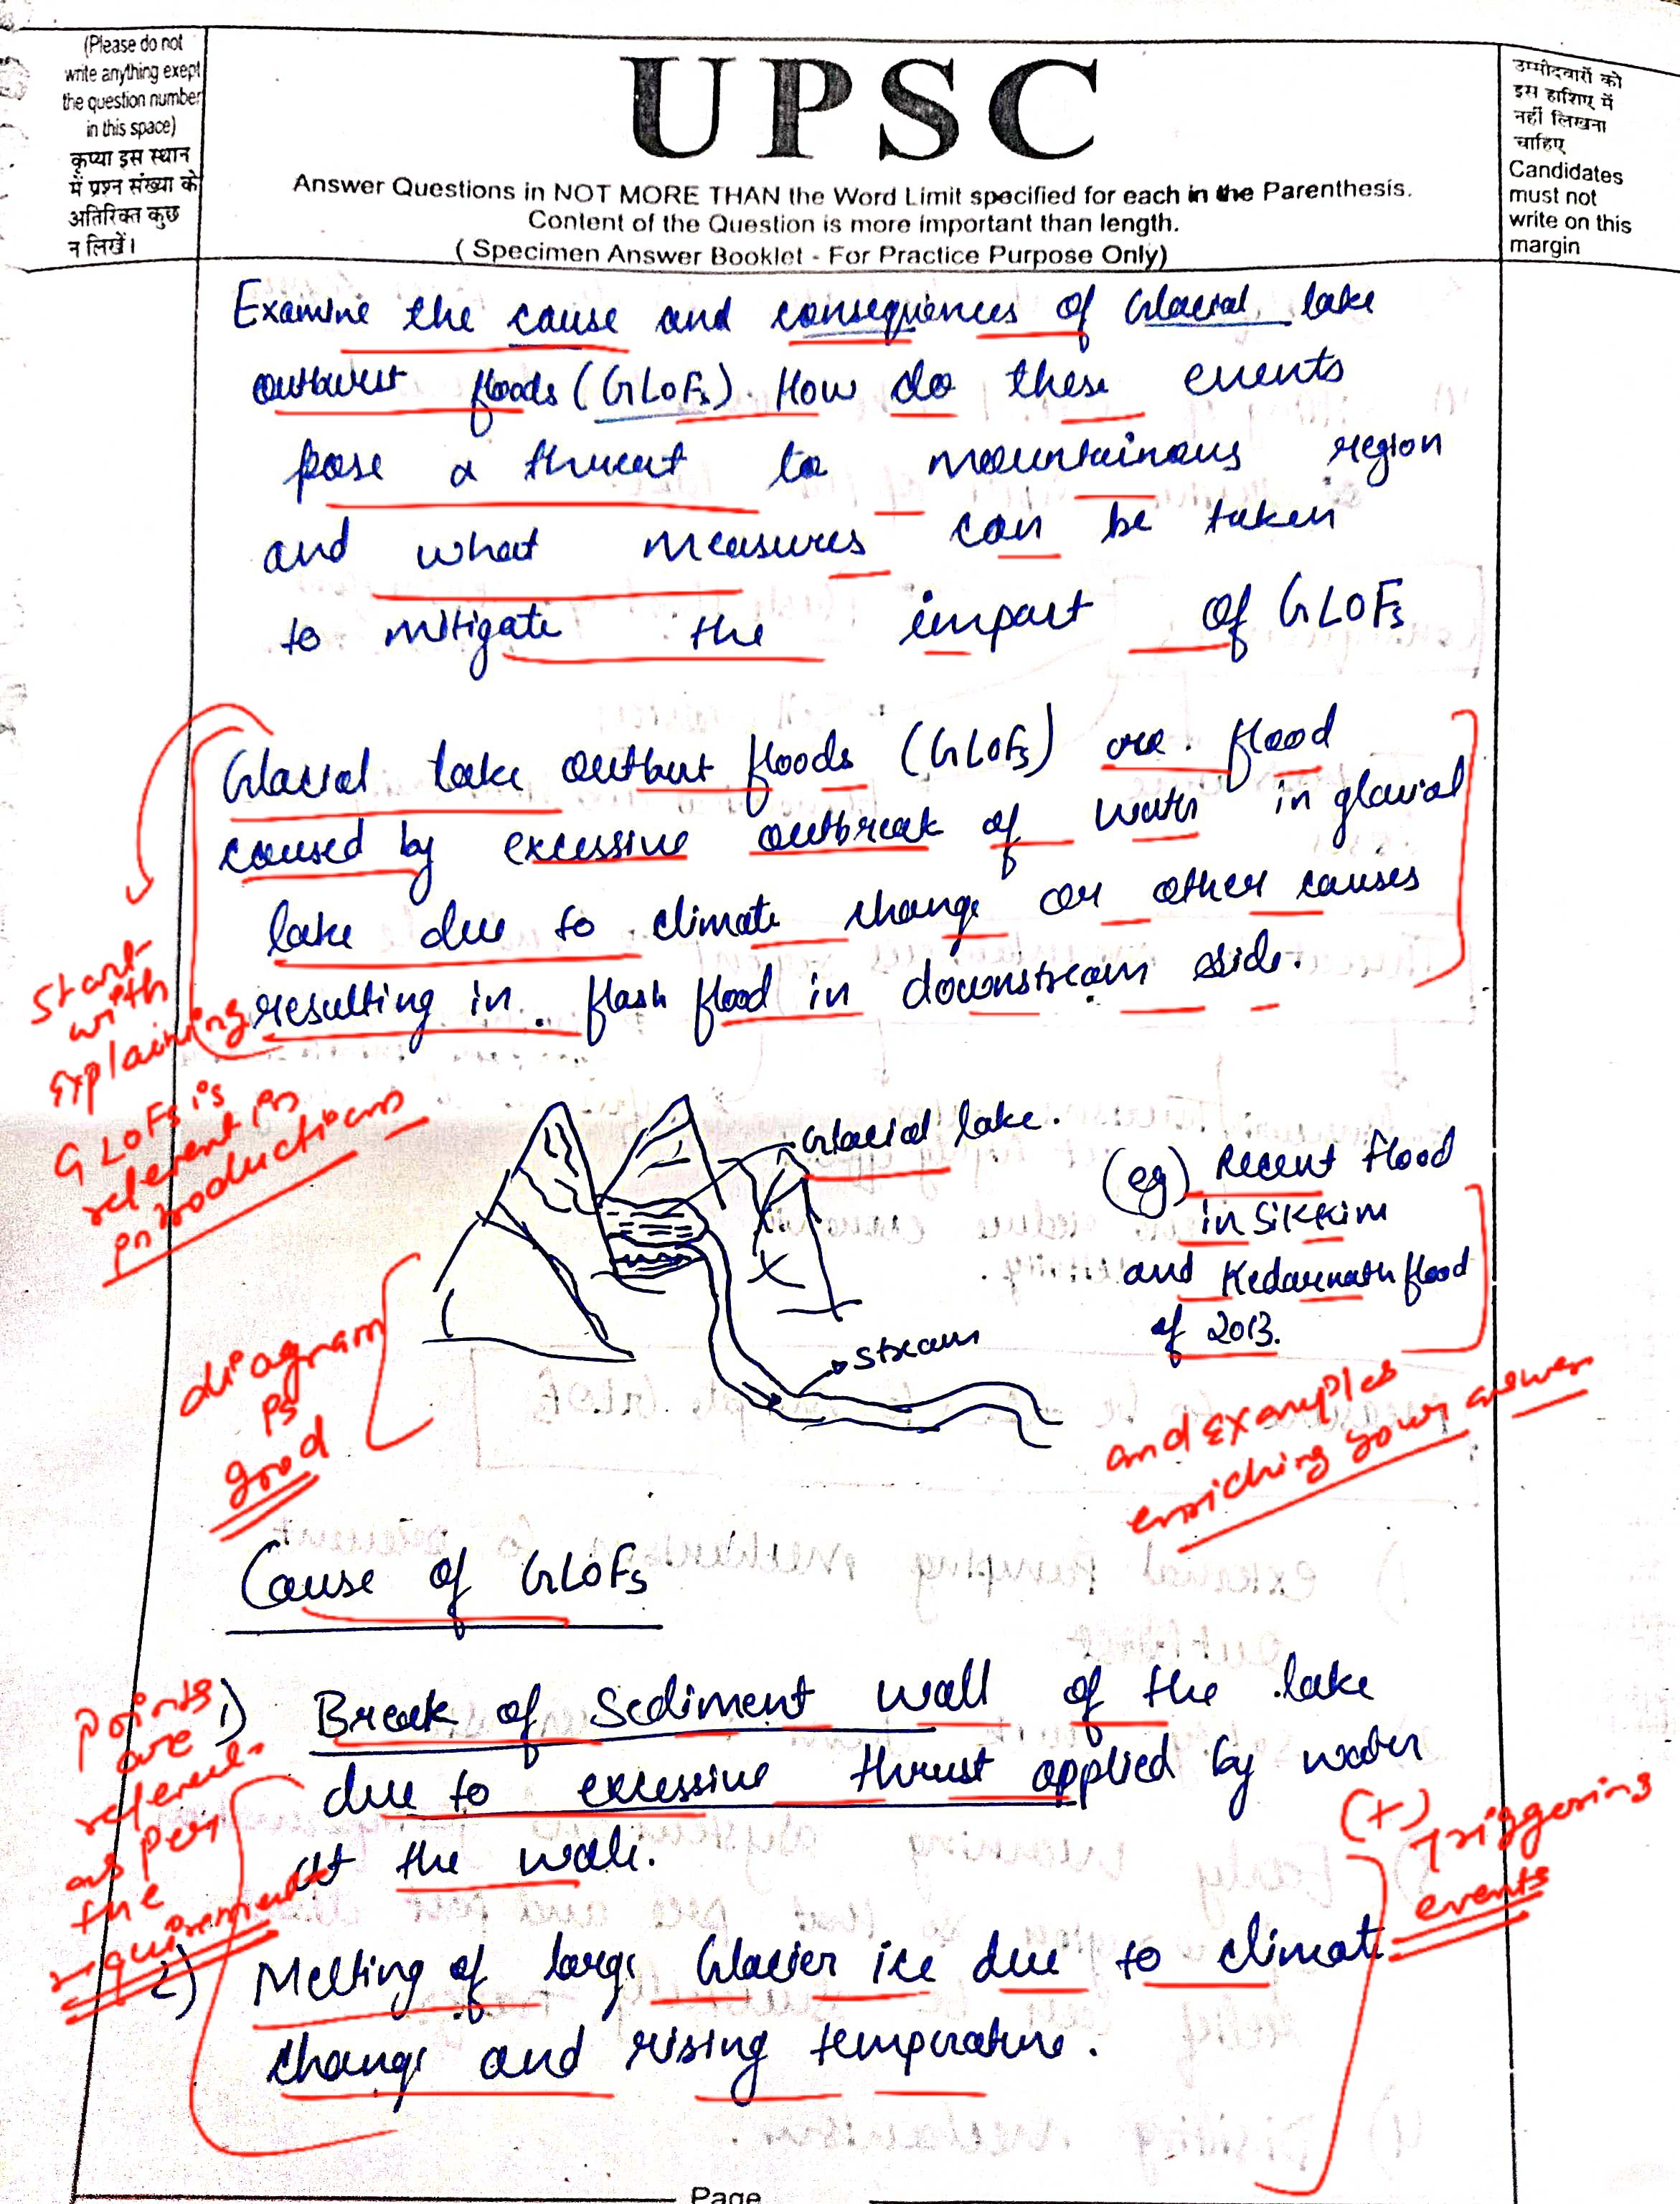 (Please do not
write anything exept
the question number
in this space)
कृप्या इस स्थान
में प्रश्न संख्या के
अतिरिक्त कुछ
न लिखें।
UPSC
Answer Questions in NOT MORE THAN the Word Limit specified for each in the Parenthesis.
Content of the Question is more important than length.
( Specimen Answer Booklet - For Practice Purpose Only)
उम्मीदवारों को
इस हाशिए में
नहीं लिखना
चाहिए
Candidates
must not
write on this
margin
Examine the cause and consequences of Glacial lake
outburst floods (GLOFs). How do these events
pose a threat to mountainous region
and what measures can be taken
to mitigate the impact of GLOFs
Glacial lake outburt floods (GLOFs) are flood
caused by excessive outbreak of water in glacial
lake due to climate change or other causes
resulting in flash flood in downstream side.
Start
with
explaining
GLOFs is
relevent in
introductions
Glacial lake.
stream
(eg) Recent flood
in Sikkim
and Kedarnath flood
of 2013.
diagram
is
good
and examples
enriching your answer
Cause of GLOFs
1) Break of Sediment wall of the lake
due to excessive thrust applied by water
at the wall.
points
are
relevent
as per
the
requirement
(+) Triggering
events
2) Melting of large Glacier ice due to climate
change and rising temperature.
Page